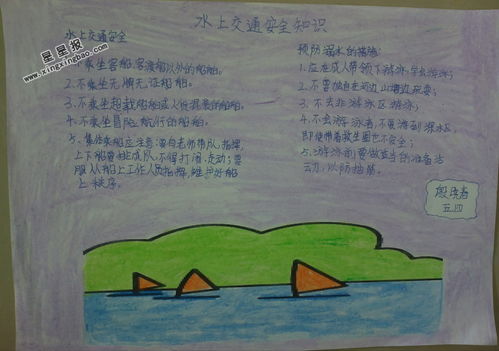 水上交通安全知识
星星报
www.xingxingbao.com
水上交通安全
1.不乘坐客船、客渡船以外的船舶。
2.不乘坐无牌无证船舶。
3.不乘坐超载船舶或人货混装的船舶。
4.不乘坐冒险航行的船舶。
5、集体乘船应注意:须由老师带队,指挥,
上下船要排成队,不得打闹、走动;要
服从船上工作人员指挥,维护好船
上秩序。
预防溺水的措施:
1.应在成人带领下游泳,学会游泳;
2.不要独自在河边、山塘边玩耍;
3.不去非游泳区游泳;
4.不会游泳者,不要游到深水区,
即使带着救生圈也不安全;
5、游泳前要做适当的准备活
动,以防抽筋。
五四